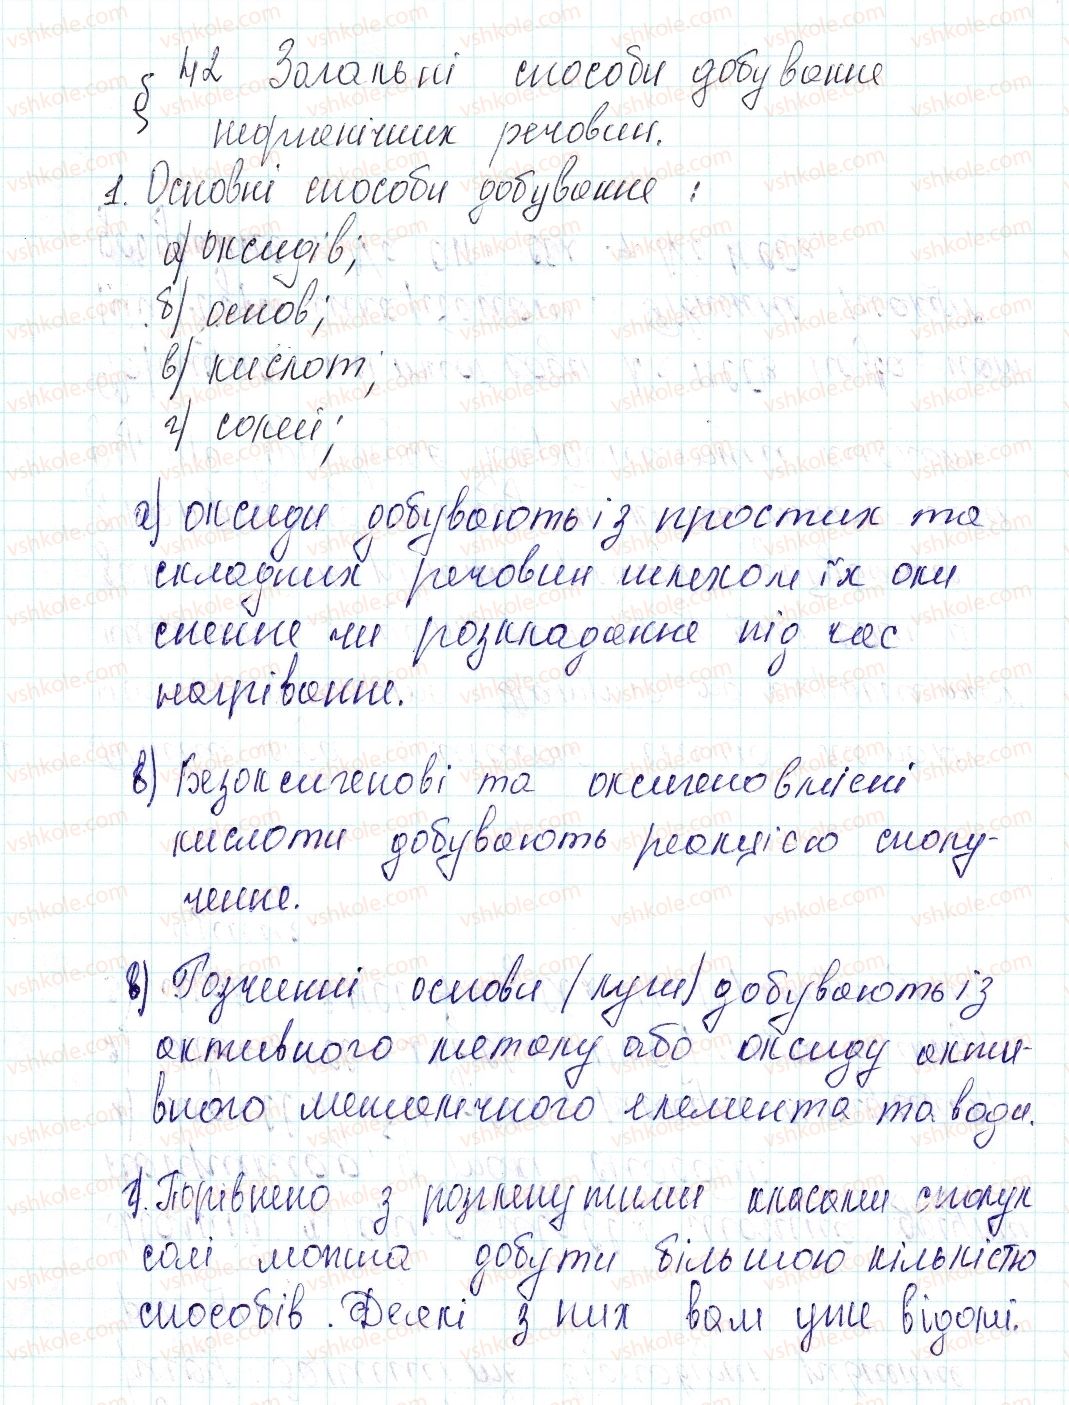 § 42 Загальні способи добування
неорганічних речовин.
1. Основні способи добування :
а) оксидів;
б) основ;
в) кислот;
г) солей;
а) оксиди добувають із простих та
складних речовин шляхом їх оки
снення чи розкладання під час
нагрівання.
в) Безоксигенові та оксигеновмісні
кислоти добувають реакцією сполу-
чення.
в) Розчинні основи (луги) добувають із
активного металу або оксиду акти-
вного металічного елемента та води.
г). Порівняно з розглянутими класами сполук
солі можна добути більшою кількістю
способів. Деякі з них вам уже відомі.